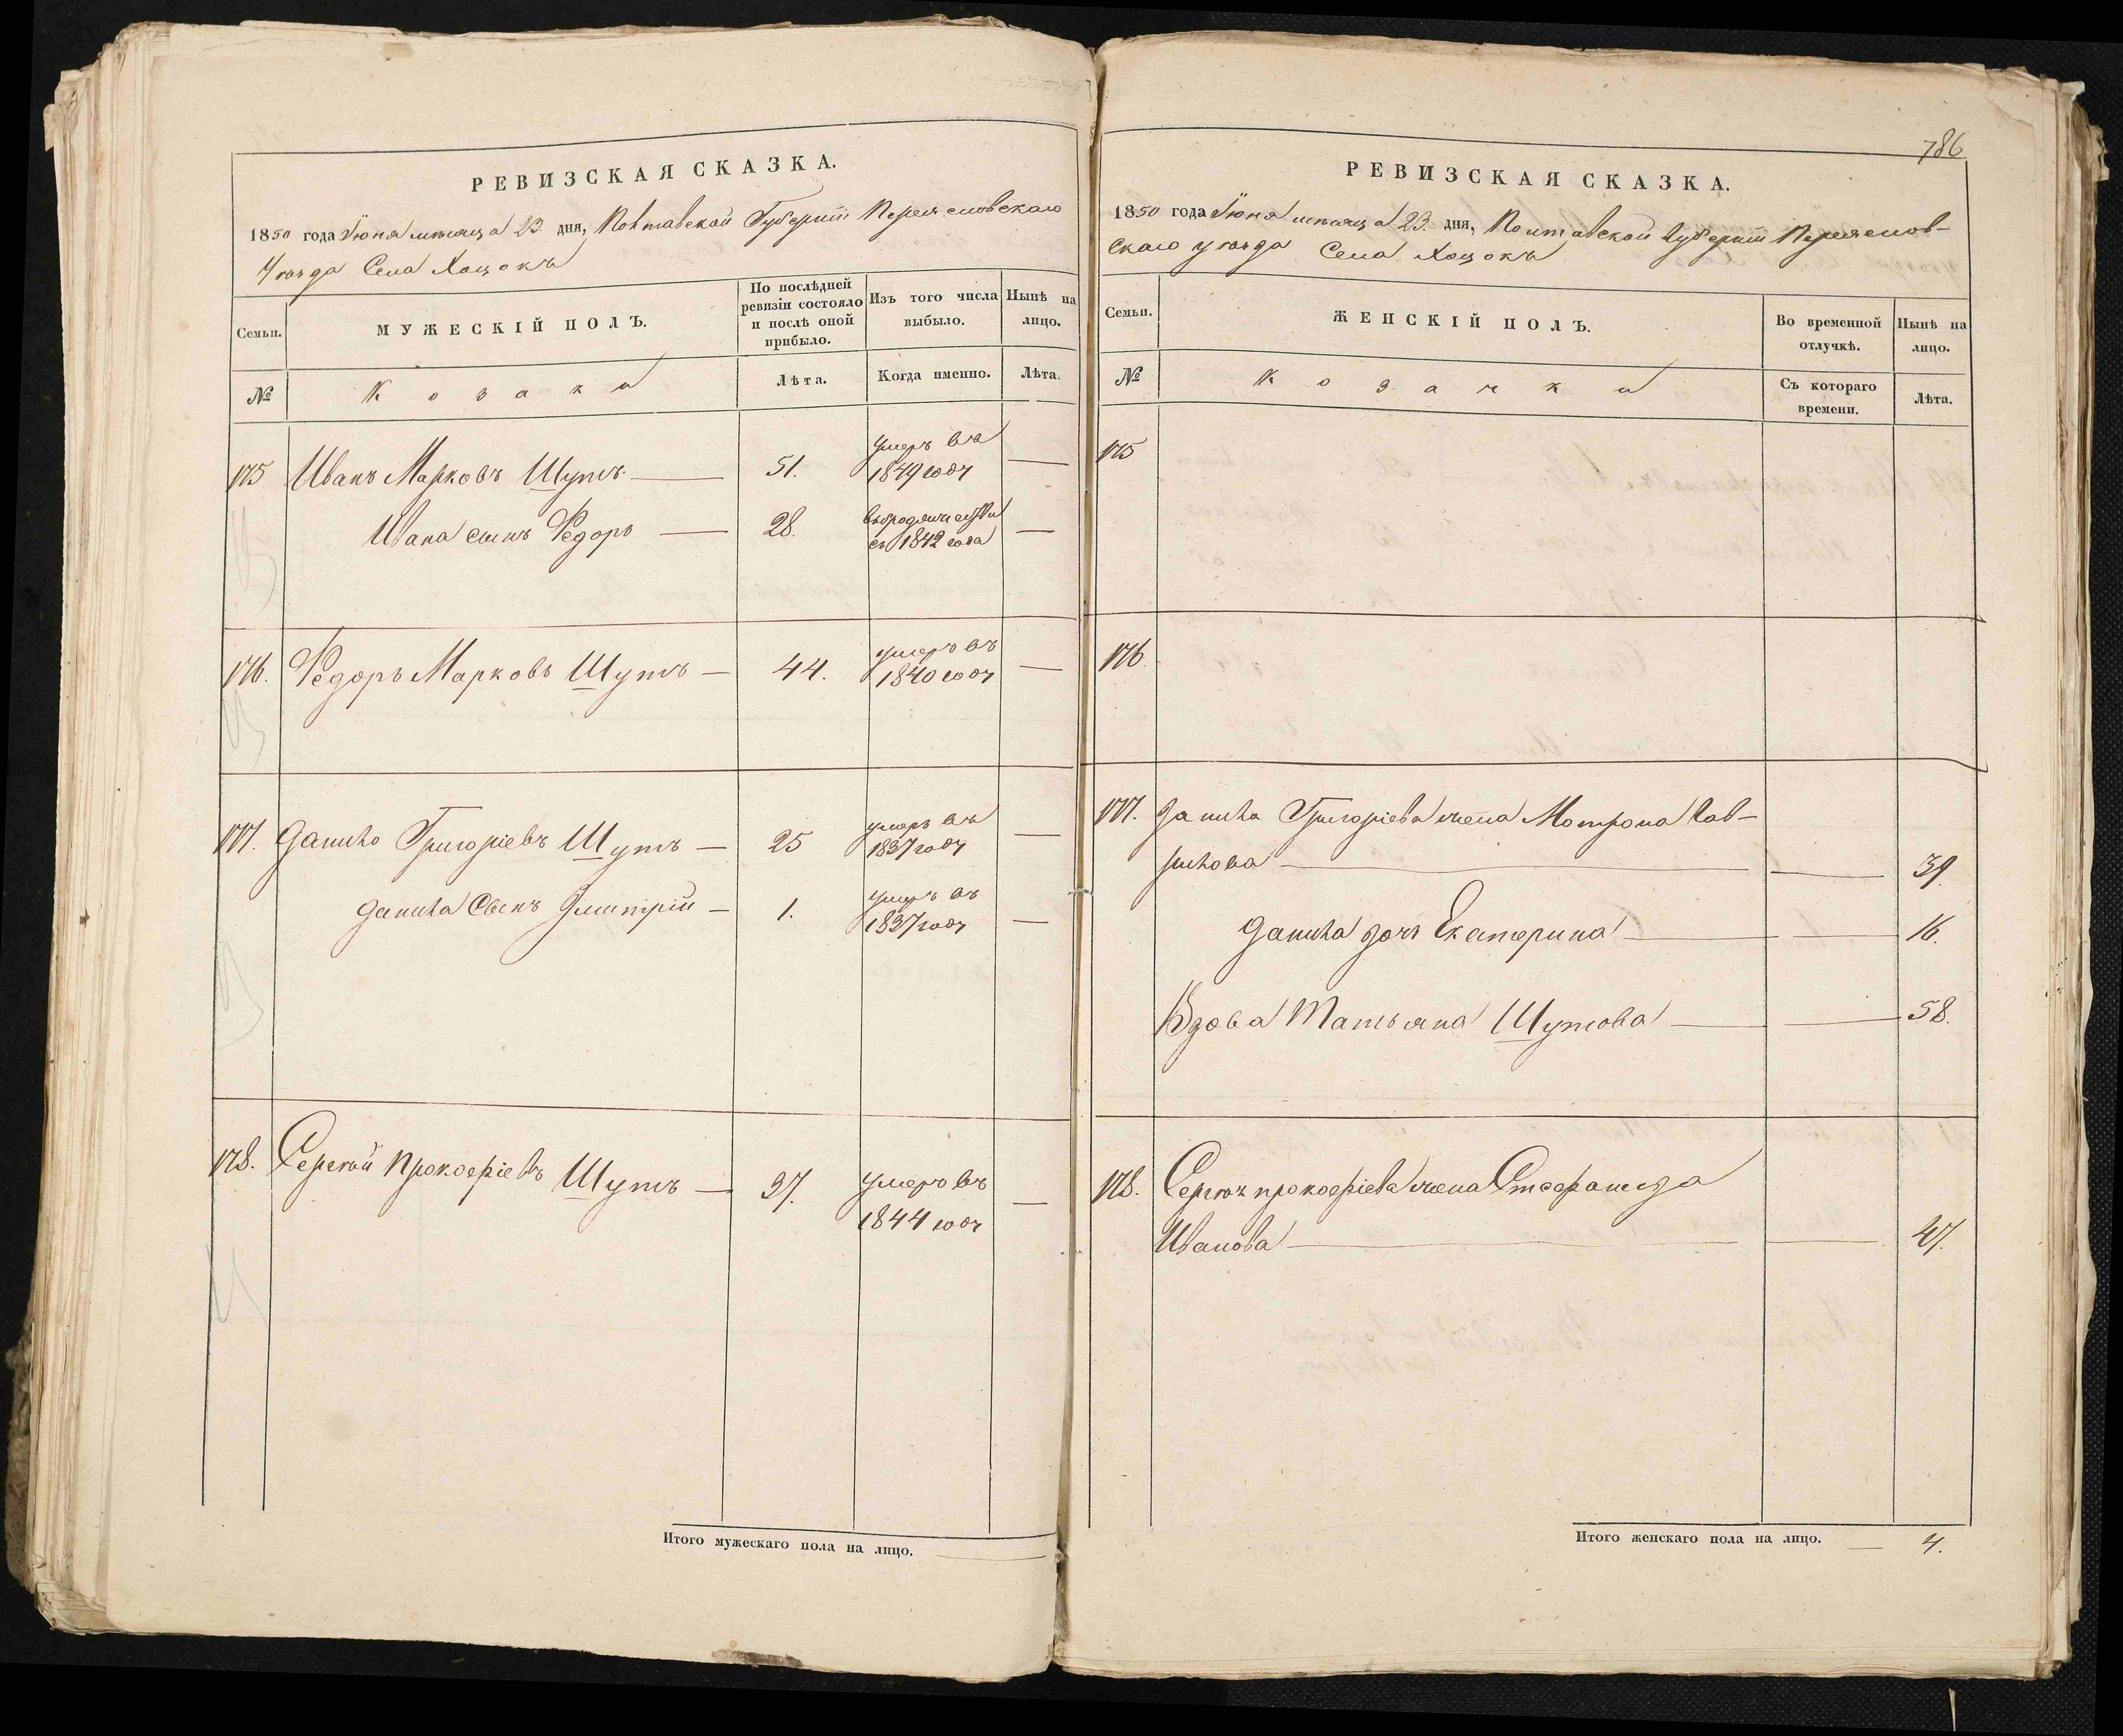 РЕВИЗСКАЯ СКАЗКА.
1850 года Іюня мѣсяца 23. дня, Полтавской Губерніи Переяславскаго
Уѣзда Села Хоцокъ
Семьи.
МУЖЕСКІЙ ПОЛЪ.
По послѣдней ревизіи состояло и послѣ оной прибыло.
Изъ того числа выбыло.
Нынѣ на лицо.
№
Козаки
Лѣта.
Когда именно.
Лѣта.
175 Иванъ Марковъ Шутъ — 51. умеръ въ 1849 году —
Ивана сынъ Федоръ — 28. въ бродяжествѣ съ 1842 года —
176. Федоръ Марковъ Шутъ — 44. умеръ въ 1840 году —
177. Данило Григоріевъ Шутъ — 25 умеръ въ 1837 году —
Данила Сынъ Дмитрій — 1. умеръ въ 1837 году —
178. Сергѣй Прокофіевъ Шутъ — 37. умеръ въ 1844 году —
Итого мужескаго пола на лицо. —
786
РЕВИЗСКАЯ СКАЗКА.
1850 года Іюня мѣсяца 23. дня, Полтавской Губерніи Переяслов-
скаго уѣзда Села Хоцокъ
Семьи.
ЖЕНСКІЙ ПОЛЪ.
Во временной отлучкѣ.
Нынѣ на лицо.
№
Козачки
Съ котораго времени.
Лѣта.
175
176
177. Данила Григоріева жена Мотрона Гав-
рилова — — 39.
Данила дочь Екатерина — — 16.
Вдова Татьяна Шутова — — 58.
178. Сергѣя прокофіева жена Стефанида
Иванова — — 47.
Итого женскаго пола на лицо. — 4.